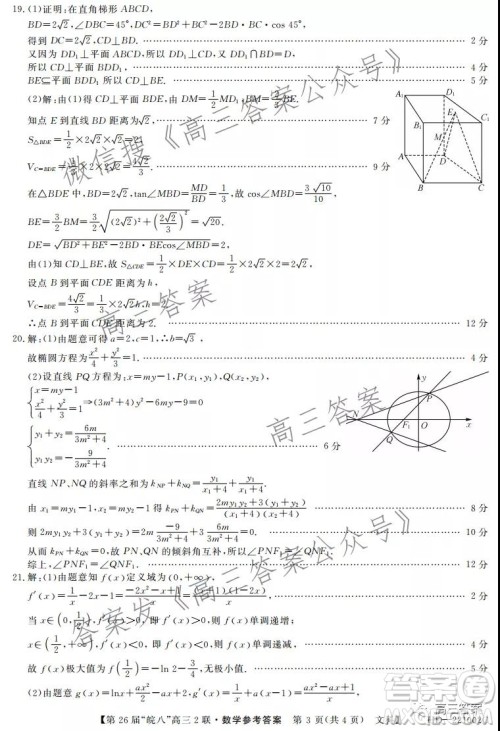 19.(1)证明:在直角梯形 ABCD,
BD=2√2,∠DBC=45°,DC²=BD²+BC²-2BD·BC·cos 45°,
得到 DC=2√2,CD⊥BD. 2 分
又因为 DD₁⊥平面 ABCD,所以 CD⊥DD₁,又 DD₁∩BD=D,
所以 CD⊥平面 BDD₁.
BE⊆平面 BDD₁,所以 CD⊥BE. 5 分
(2)解:由(1)得 CD⊥平面 BDE,由 DM=1/2 MD₁,BM=
E 点到直线 BD 距离为√2. 7 分
S△BDE=1/2×2√2×√2=2.
V C-BDE=1/3×2×2√2=4√2/3. 9 分
在△BDE 中,BD=2√2,tan∠MBD=MD/BD=1/3,故 cos∠MBD=3√10/10.
BE=3/2 BM=3/2 √((2√2)²+(2√2/3)²)=√20.
DE=√(BD²+BE²-2BD·BE cos∠MBD)=2.
由(1)知 CD⊥BE,故 S△CDE=1/2×DE×CD=1/2×2×2√2=2√2.
设点 B 到平面 CDE 距离为 h,
V C-BDE=4√2/3=V B-CDE=1/3×2√2h,h=2.
∴点 B 到平面 CDE 距离为 2. 12 分
20.解:(1)由题意可得 a=2,c=1,∴b=√3,
故椭圆方程为 x²/4+y²/3=1. 4 分
(2)设直线 PQ 方程为:x=my-1,P(x₁,y₁),Q(x₂,y₂),
{x=my-1
x²/4+y²/3=1 ⇒(3m²+4)y²-6my-9=0
{y₁+y₂=6m/(3m²+4)
y₁y₂=-9/(3m²+4) 6 分
直线 NP、NQ 的斜率之和为 k_NP+k_NQ=y₁/(x₁+4)+y₂/(x₂+4).
由 x₁=my₁-1,x₂=my₂-1,得 k_PN+k_QN=(2my₁y₂+3(y₁+y₂))/((x₁+4)(x₂+4)) 8 分
则 2my₁y₂+3(y₁+y₂)=2m·(-9)/(3m²+4)+3·6m/(3m²+4)=0. 10 分
从而 k_PN+k_QN=0,故 PN、QN 的倾斜角互补,所以∠PNF₁=∠QNF₁.
综上,∠PNF₁=∠QNF₁. 12 分
21.解:(1)由题意知 f(x)定义域为(0,+∞),
f′(x)=1/x-2x-1=(-2x²-x+1)/x=((x+1)(1-2x))/x 2 分
当 x∈(0,1/2),f′(x)>0,即 f′(x)>0,则 f(x)单调递增;
x∈(1/2,+∞),f′(x)<0,即 f′(x)<0,则 f(x)单调递减. 4 分
故 f(x)极大值为 f(1/2)=-ln2-3/4,无极小值. 5 分
(2)由题意 g(x)=lnx+ax²/2-(a+1)x,
【第 26 届“皖八”高三 2 联·数学参考答案 第 3 页(共 4 页) 文
A₁
D₁
E
B₁
C₁
M
A
D
B
C
y
P
N
F₁
O
x
Q
微信搜《高三答案公众号》
高三答案
高三答案
答案发《高三答案公众号》
高三答案